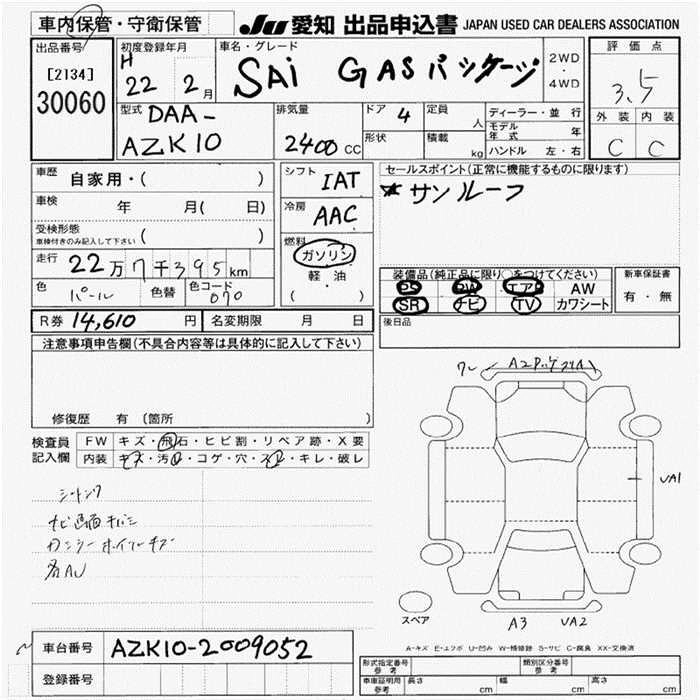 車内保管・守衛保管
JU 愛知 出品申込書 JAPAN USED CAR DEALERS ASSOCIATION
出品番号
[2134]
30060
初度登録年月
H 22 2月
車名・グレード
SAi GASパッケージ
2WD
・
4WD
評価点
3.5
外装 内装
C C
型式
DAA-
AZK10
排気量
2400 CC
ドア 4
形状
定員 人
積載 kg
ディーラー・並行
モデル年式 年
ハンドル 左・右
車歴 自家用・( )
車検 年 月( 日)
受検形態
車検付きのみ記入して下さい ( )
走行 22万7千395km
色 パール 色替 色コード 070
シフト IAT
冷房 AAC
燃料
ガソリン
軽・油
( )
セールスポイント(正常に機能するものに限ります)
*サンルーフ
装備品(純正品に限り○をつけてください)
PS PW エアB AW
SR ナビ TV カワシート
新車保証書
有・無
後日品
R券 14,610円 名変期限 月 日
注意事項申告欄(不具合内容等は具体的に記入して下さい)
修復歴 有 (箇所 )
検査員
記入欄
FW キズ・飛石・ヒビ割・リペア跡・X要
内装 キズ・汚れ・コゲ・穴・スレ・キレ・破レ
各AU
A2
UA1
A3 UA2
スペア
A-キズ E-エクボ U-凹み W-補修跡 S-サビ C-腐食 XX-交換済
車台番号 AZK10-2009052
登録番号
形式指定番号
参考
類別区分番号
参考
車庫証明用
参考
長さ cm 幅 cm 高さ cm